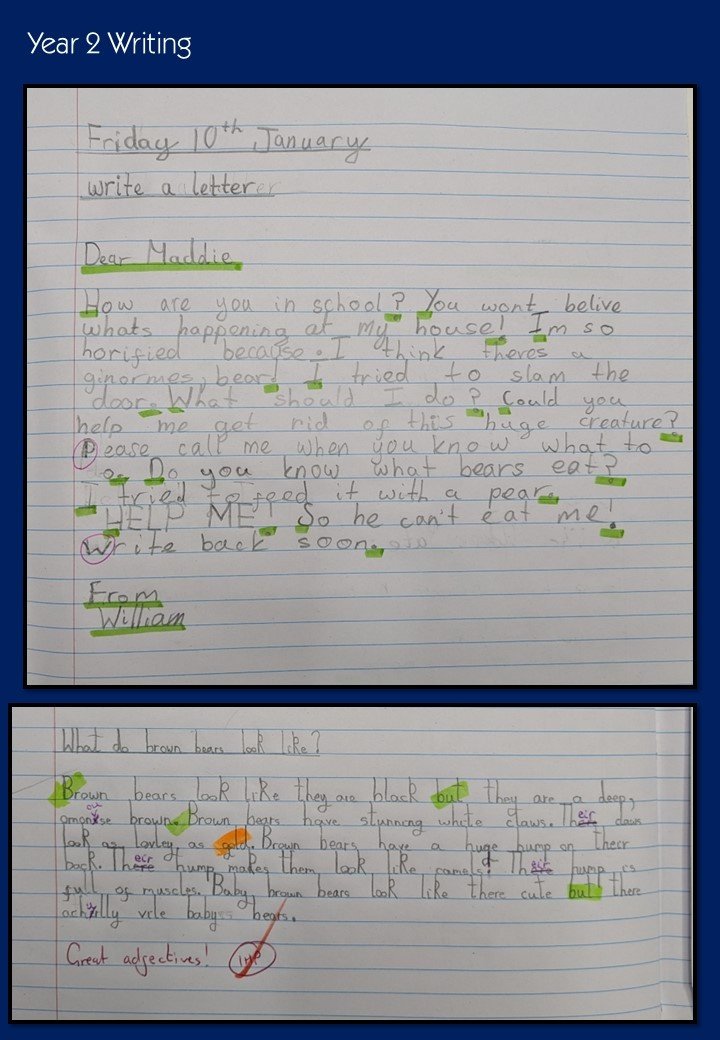 Year 2 Writing
Friday 10th January
write a letter
Dear Maddie
How are you in school? You wont belive
whats happening at my house! Im so
horified because. I think theres a
ginormes bear! I tried to slam the
door. What should I do? Could you
help me get rid of this huge creature?
Please call me when you know what to
do. Do you know what bears eat?
I tried to feed it with a pear.
HELP ME! So he can't eat me!
Write back soon.
From
William
What do brown bears look like?
Brown bears look like they are black but they are a deep,
brown. Brown bears have stunning white claws. Their claws
look as lovley as gold. Brown bears have a huge hump on their
back. Their hump makes them look like camels! Their hump is
full of muscles. Baby brown bears look like there cute but there
vile baby bears.
Great adjectives!